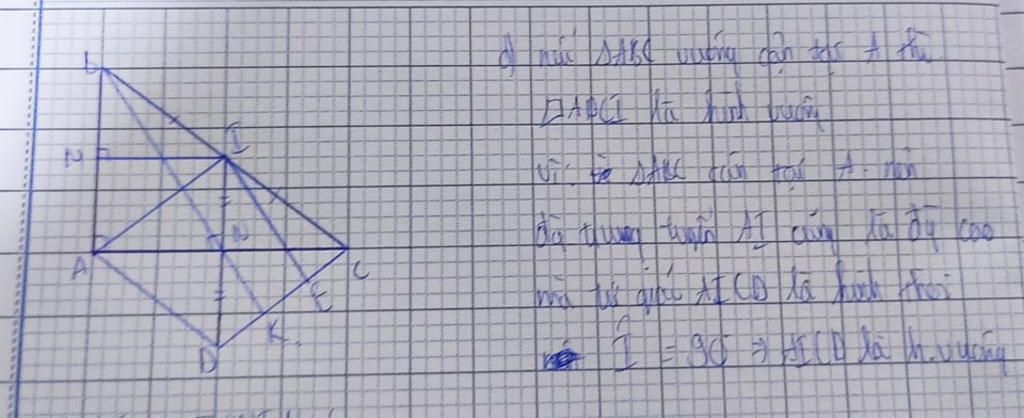 B
d) nếu ΔABC vuông cân tại A thì
N
I
□ADCI là hình vuông
vì ΔABC cân tại A nên
A
N
C
đg trung tuyến AI cũng là đg cao
E
mà tứ giác AICD là hình thoi
K
D
Î = 90 ⇒ AICD là h.vuông